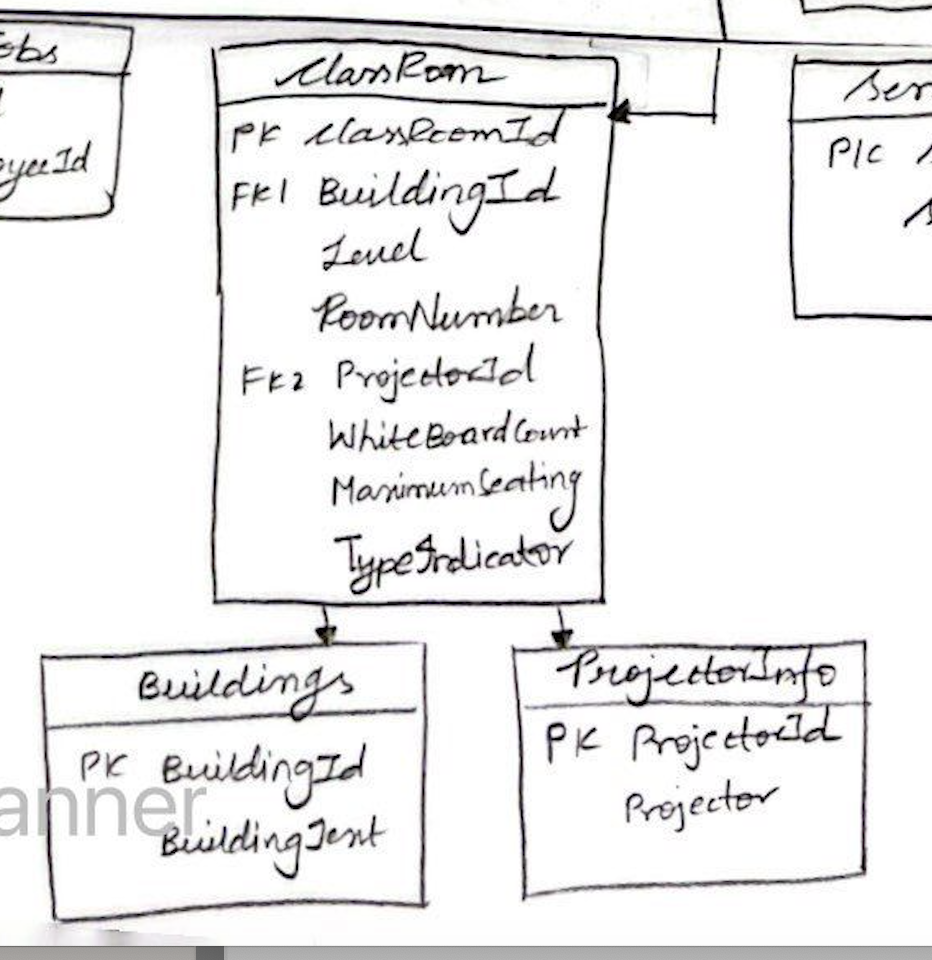 obs
oyeeId
ClassRoom
PK ClassRoomId
FK1 BuildingId
Level
RoomNumber
FK2 ProjectorId
WhiteBoardCount
MaximumSeating
TypeIndicator
Ser
PK
Buildings
PK BuildingId
BuildingText
ProjectorInfo
PK ProjectorId
Projector
anner